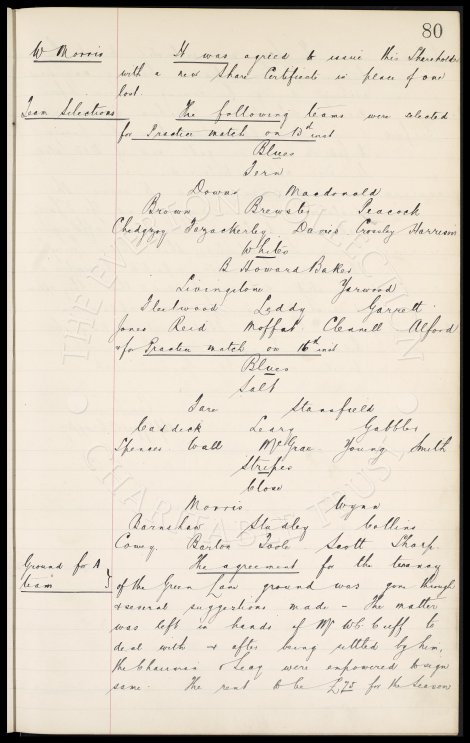 80
W Morris It was agreed to issue this Shareholder
with a new Share Certificate in place of one
lost.
Team Selections The following teams were selected
for Practice match on 13th inst
Blues
Fern
Downs Macdonald
Brown Brewster Peacock
Chedgzoy Fazackerley Davies Crossley Harrison
Whites
B Howard Baker
Livingstone Yarwood
Fleetwood Leddy Garrett
Jones Reid Moffat Clennell Alford
& for Practice match on 16th inst
Blues
Salt
Tare Stansfield
Caddick Leary
Spencer Wall McGrae Young Smith
Stripes
Close
Morris Wynn
Barnshaw Collins
Barton Toole Scott Sharp.
Ground for A The agreement for the tenancy
team of the Green Lane ground was gone through
& several suggestions made - The matter
was left in hands of Mr W.C. Cuff to
deal with & after being settled by him,
the Chairman & Secy were empowered to sign
same. The rent to be £75 for the season
THE EVERTON COLLECTION
CHARITABLE TRUST